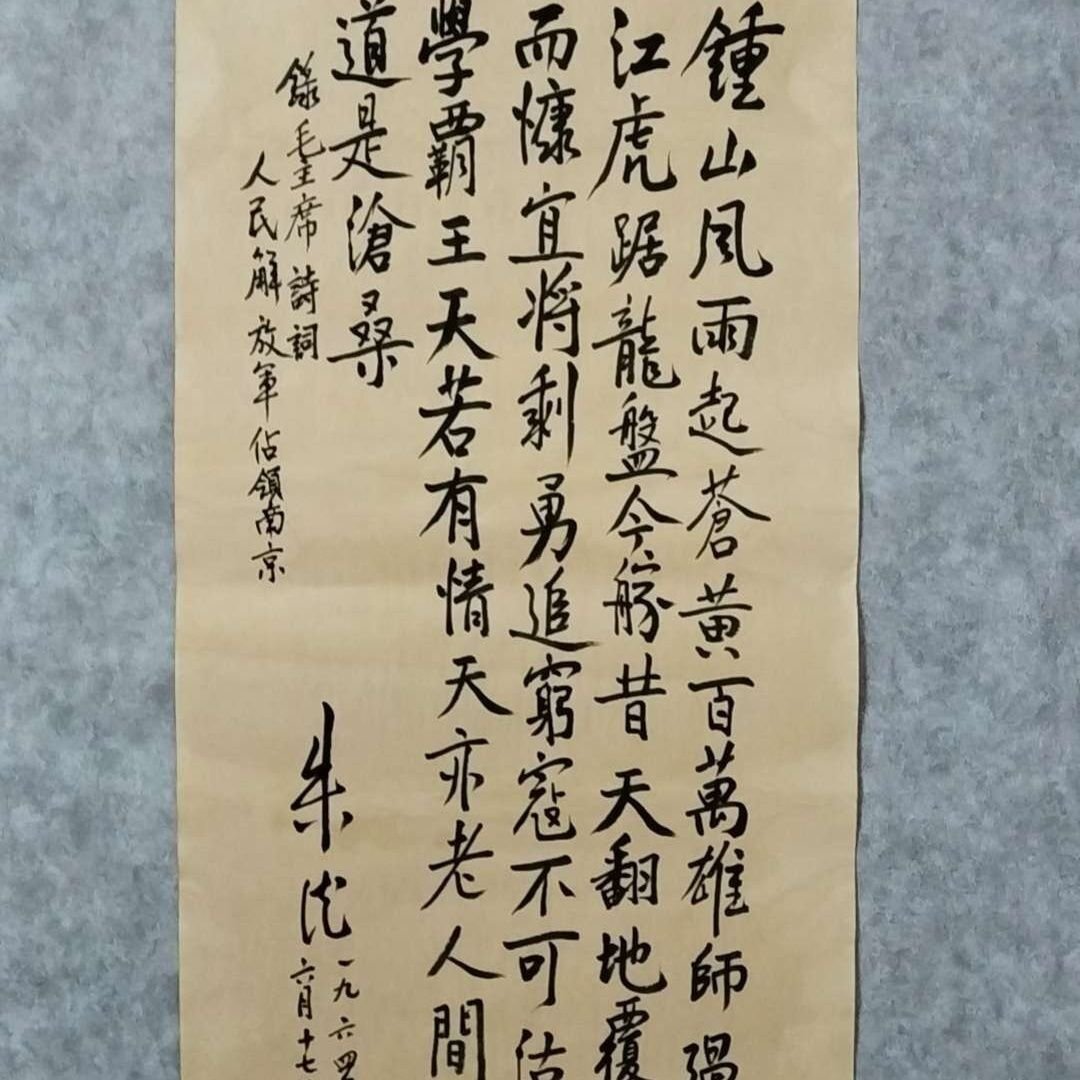 鍾山風雨起蒼黃百萬雄師過
江虎踞龍盤今勝昔天翻地覆
而慷宜将剩勇追窮寇不可沽
學覇王天若有情天亦老人間
道是滄桑
錄毛主席詩詞
人民解放軍佔領南京
朱德
一九六四
六月十七